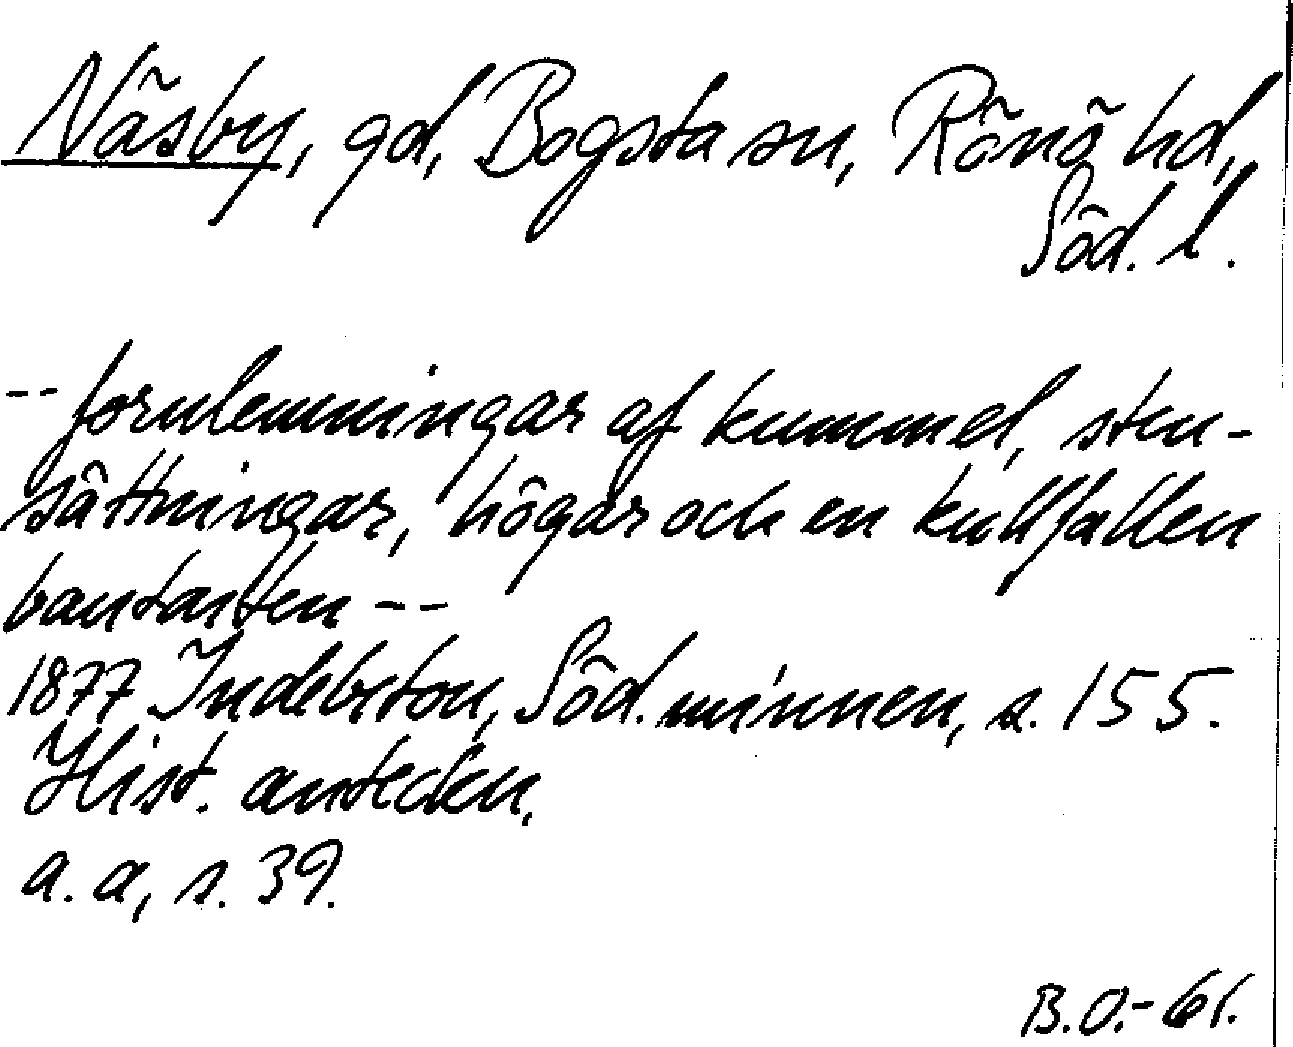 Näsby, gd, Bogsta sn, Rönö hd,
Söd. l.
-- fornlemningar af kummel, sten-
sättningar, högar och en kullfallen
bautasten --
1877 Indebetou, Söd. minnen, s. 155.
Hist. anteckn,
a. a, s. 39.
B.O.-61.